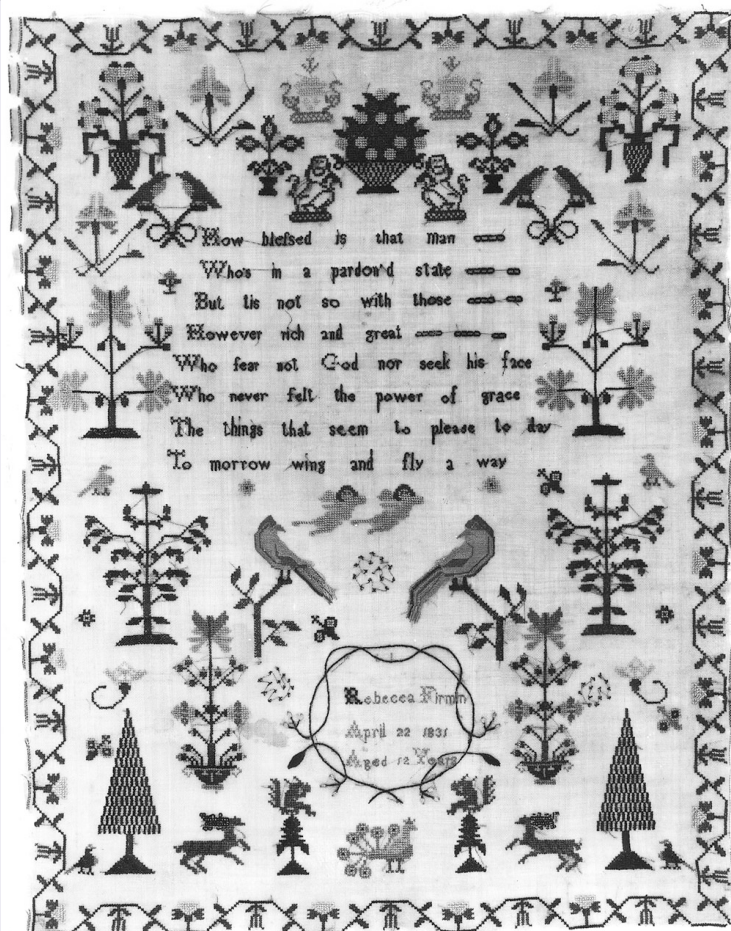 How blefsed is that man
Who's in a pardon'd state
But tis not so with those
However rich and great
Who fear not God nor seek his face
Who never felt the power of grace
The things that seem to please to day
To morrow wing and fly a way
Rebecca Firmin
April 22 1831
Aged 12 Years